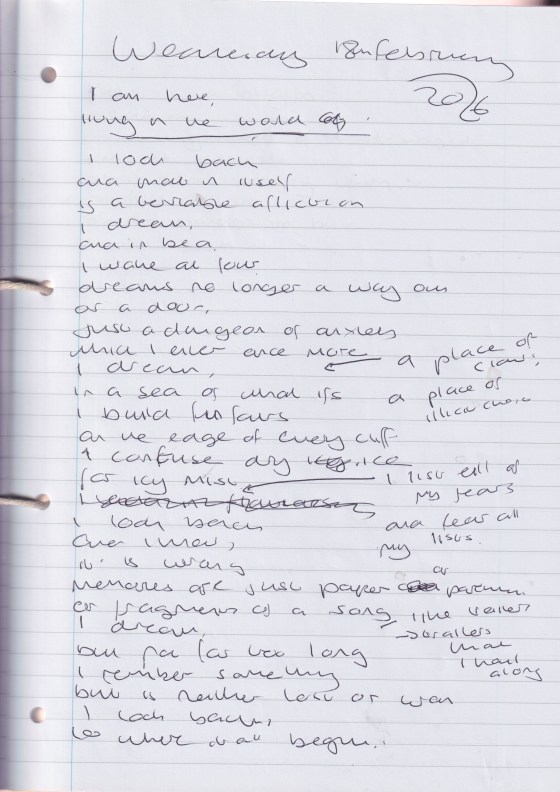 Wednesday 18th February
2026
I am here,
living in the world of.
I look back
and that in itself
is a terrible affliction
I dream,
and in bed
I wake at four
dreams no longer a way out
or a door,
just a dungeon of anxiety
which I enter once more
a place of
claws,
I dream,
in a sea of what ifs
a place of
I build funfairs
on the edge of every cliff
I confuse dry ice
for icy mist
I list all of
my fears
and fear all
my lists.
I look back
and I know,
it is wrong
memories are just paper
or
or fragments of a song
like trailers
→ trailers
that
I haul
along
I dream,
but not for too long
I remember something
but is neither lost or won
I look back,
to where it all began..